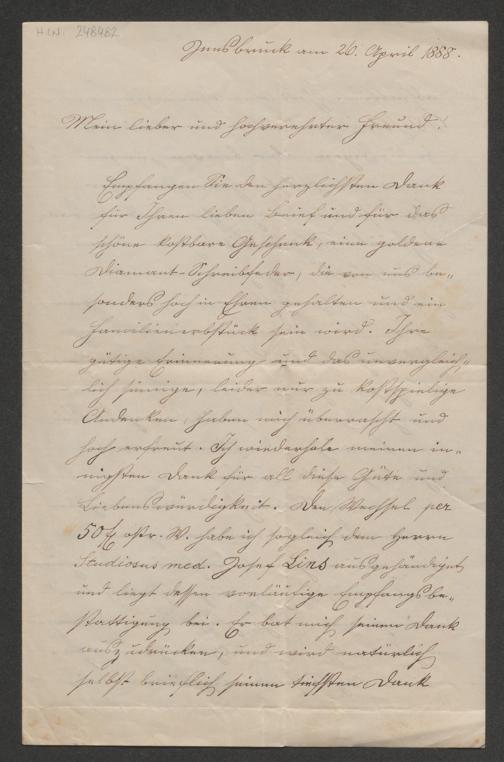 H.I.N. 248482
Innsbruck am 26. April 1888.
Mein lieber und hochverehrter Freund!
Empfangen Sie den herzlichsten Dank
für Ihren lieben Brief und für das
schöne kostbare Geschenk, eine goldene
Diamant-Schreibfeder, die von uns be-
sonders hoch in Ehren gehalten und ein
Familienerbstück sein wird. Ihre
gütige Erinnerung und das unvergleich-
lich sinnige, leider nur zu kostspielige
Andenken, haben mich überrascht und
hoch erfreut. Ich wiederhole meinen in-
nigsten Dank für all diese Güte und
Liebenswürdigkeit. Den Wechsel per
50 f. östr. W. habe ich sogleich dem Herrn
Studiosus med. Josef Lins ausgehändigt
und liegt dessen vorläufige Empfangsbe-
stättigung bei. Er bat mich seinen Dank
auszudrücken, und wird natürlich
selbst brieflich seinen tiefsten Dank